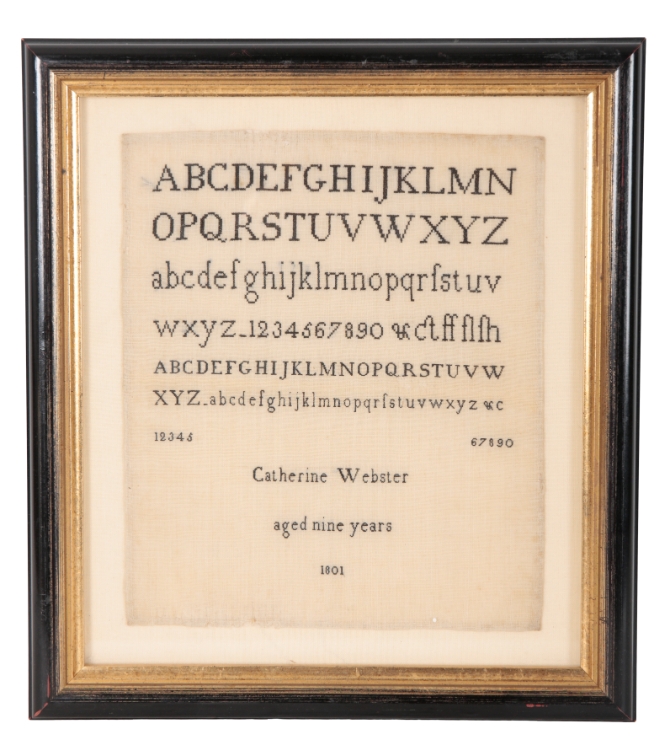 ABCDEFGHIJKLMN
OPQRSTUVWXYZ
abcdefghijklmnopqrſstuv
wxyz_1234567890 &cctffflſh
ABCDEFGHIJKLMNOPQRSTUVW
XYZ_abcdefghijklmnopqrſstuvwxyz &c
12345 67890
Catherine Webster
aged nine years
1801